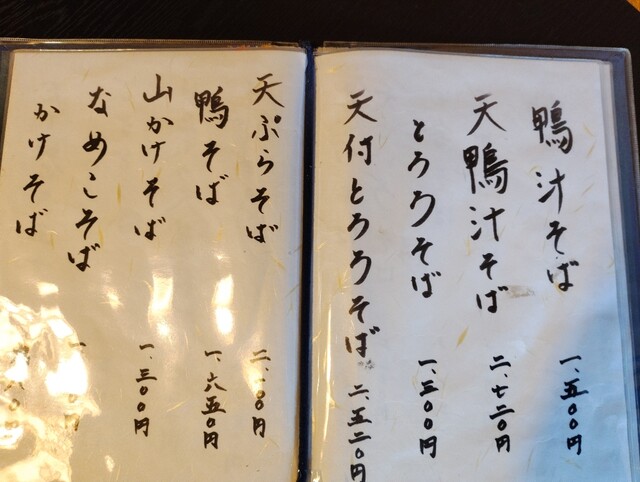 鴨汁そば 一、五〇〇円
天鴨汁そば 二、七二〇円
とろろそば 一、三〇〇円
天付とろろそば 二、五二〇円
天ぷらそば 二、一〇〇円
鴨そば 一、六五〇円
山かけそば 一、三〇〇円
なめこそば
かけそば